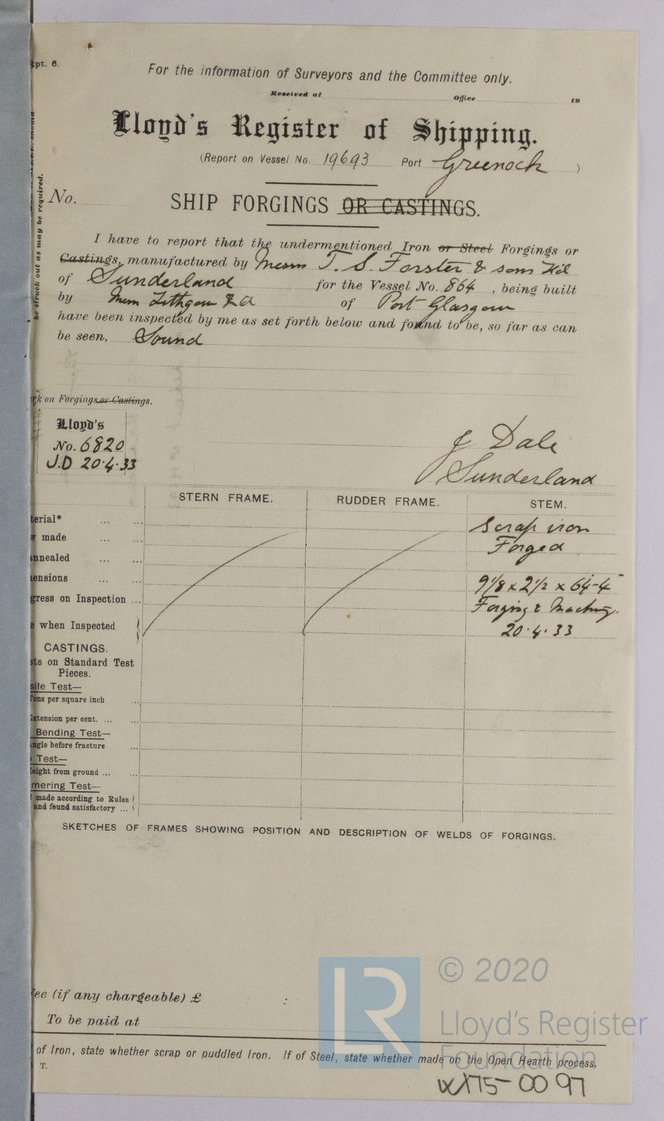 pt. 6.
For the information of Surveyors and the Committee only.
Received at Office 19
Lloyd's Register of Shipping.
(Report on Vessel No. 19693 Port Greenock )
be struck out as may be required.
No.
SHIP FORGINGS OR CASTINGS.
I have to report that the undermentioned Iron or Steel Forgings or
Castings, manufactured by Messrs T. S. Forster & Sons
of Sunderland for the Vessel No. 864, being built
by Messrs Lithgow of Port Glasgow
have been inspected by me as set forth below and found to be, so far as can
be seen, Sound
on Forgings or Castings.
Lloyd's
No. 6820
J.D 20.4.33
J Dale
Sunderland
STERN FRAME. RUDDER FRAME. STEM.
terial* Scrap iron
made Forged
nnealed
ensions 9 1/8 x 2 1/2 x 64-4
gress on Inspection Forging &
when Inspected 20.4.33
CASTINGS.
ts on Standard Test
Pieces.
ile Test—
Tons per square inch
Extension per cent.
Bending Test—
ngle before fracture
Test—
eight from ground
mering Test—
made according to Rules
and found satisfactory
SKETCHES OF FRAMES SHOWING POSITION AND DESCRIPTION OF WELDS OF FORGINGS.
ee (if any chargeable) £ :
To be paid at
of Iron, state whether scrap or puddled Iron. If of Steel, state whether made on the Open Hearth process.
T.
LR
© 2020
Lloyd's Register
Foundation
W175-0097